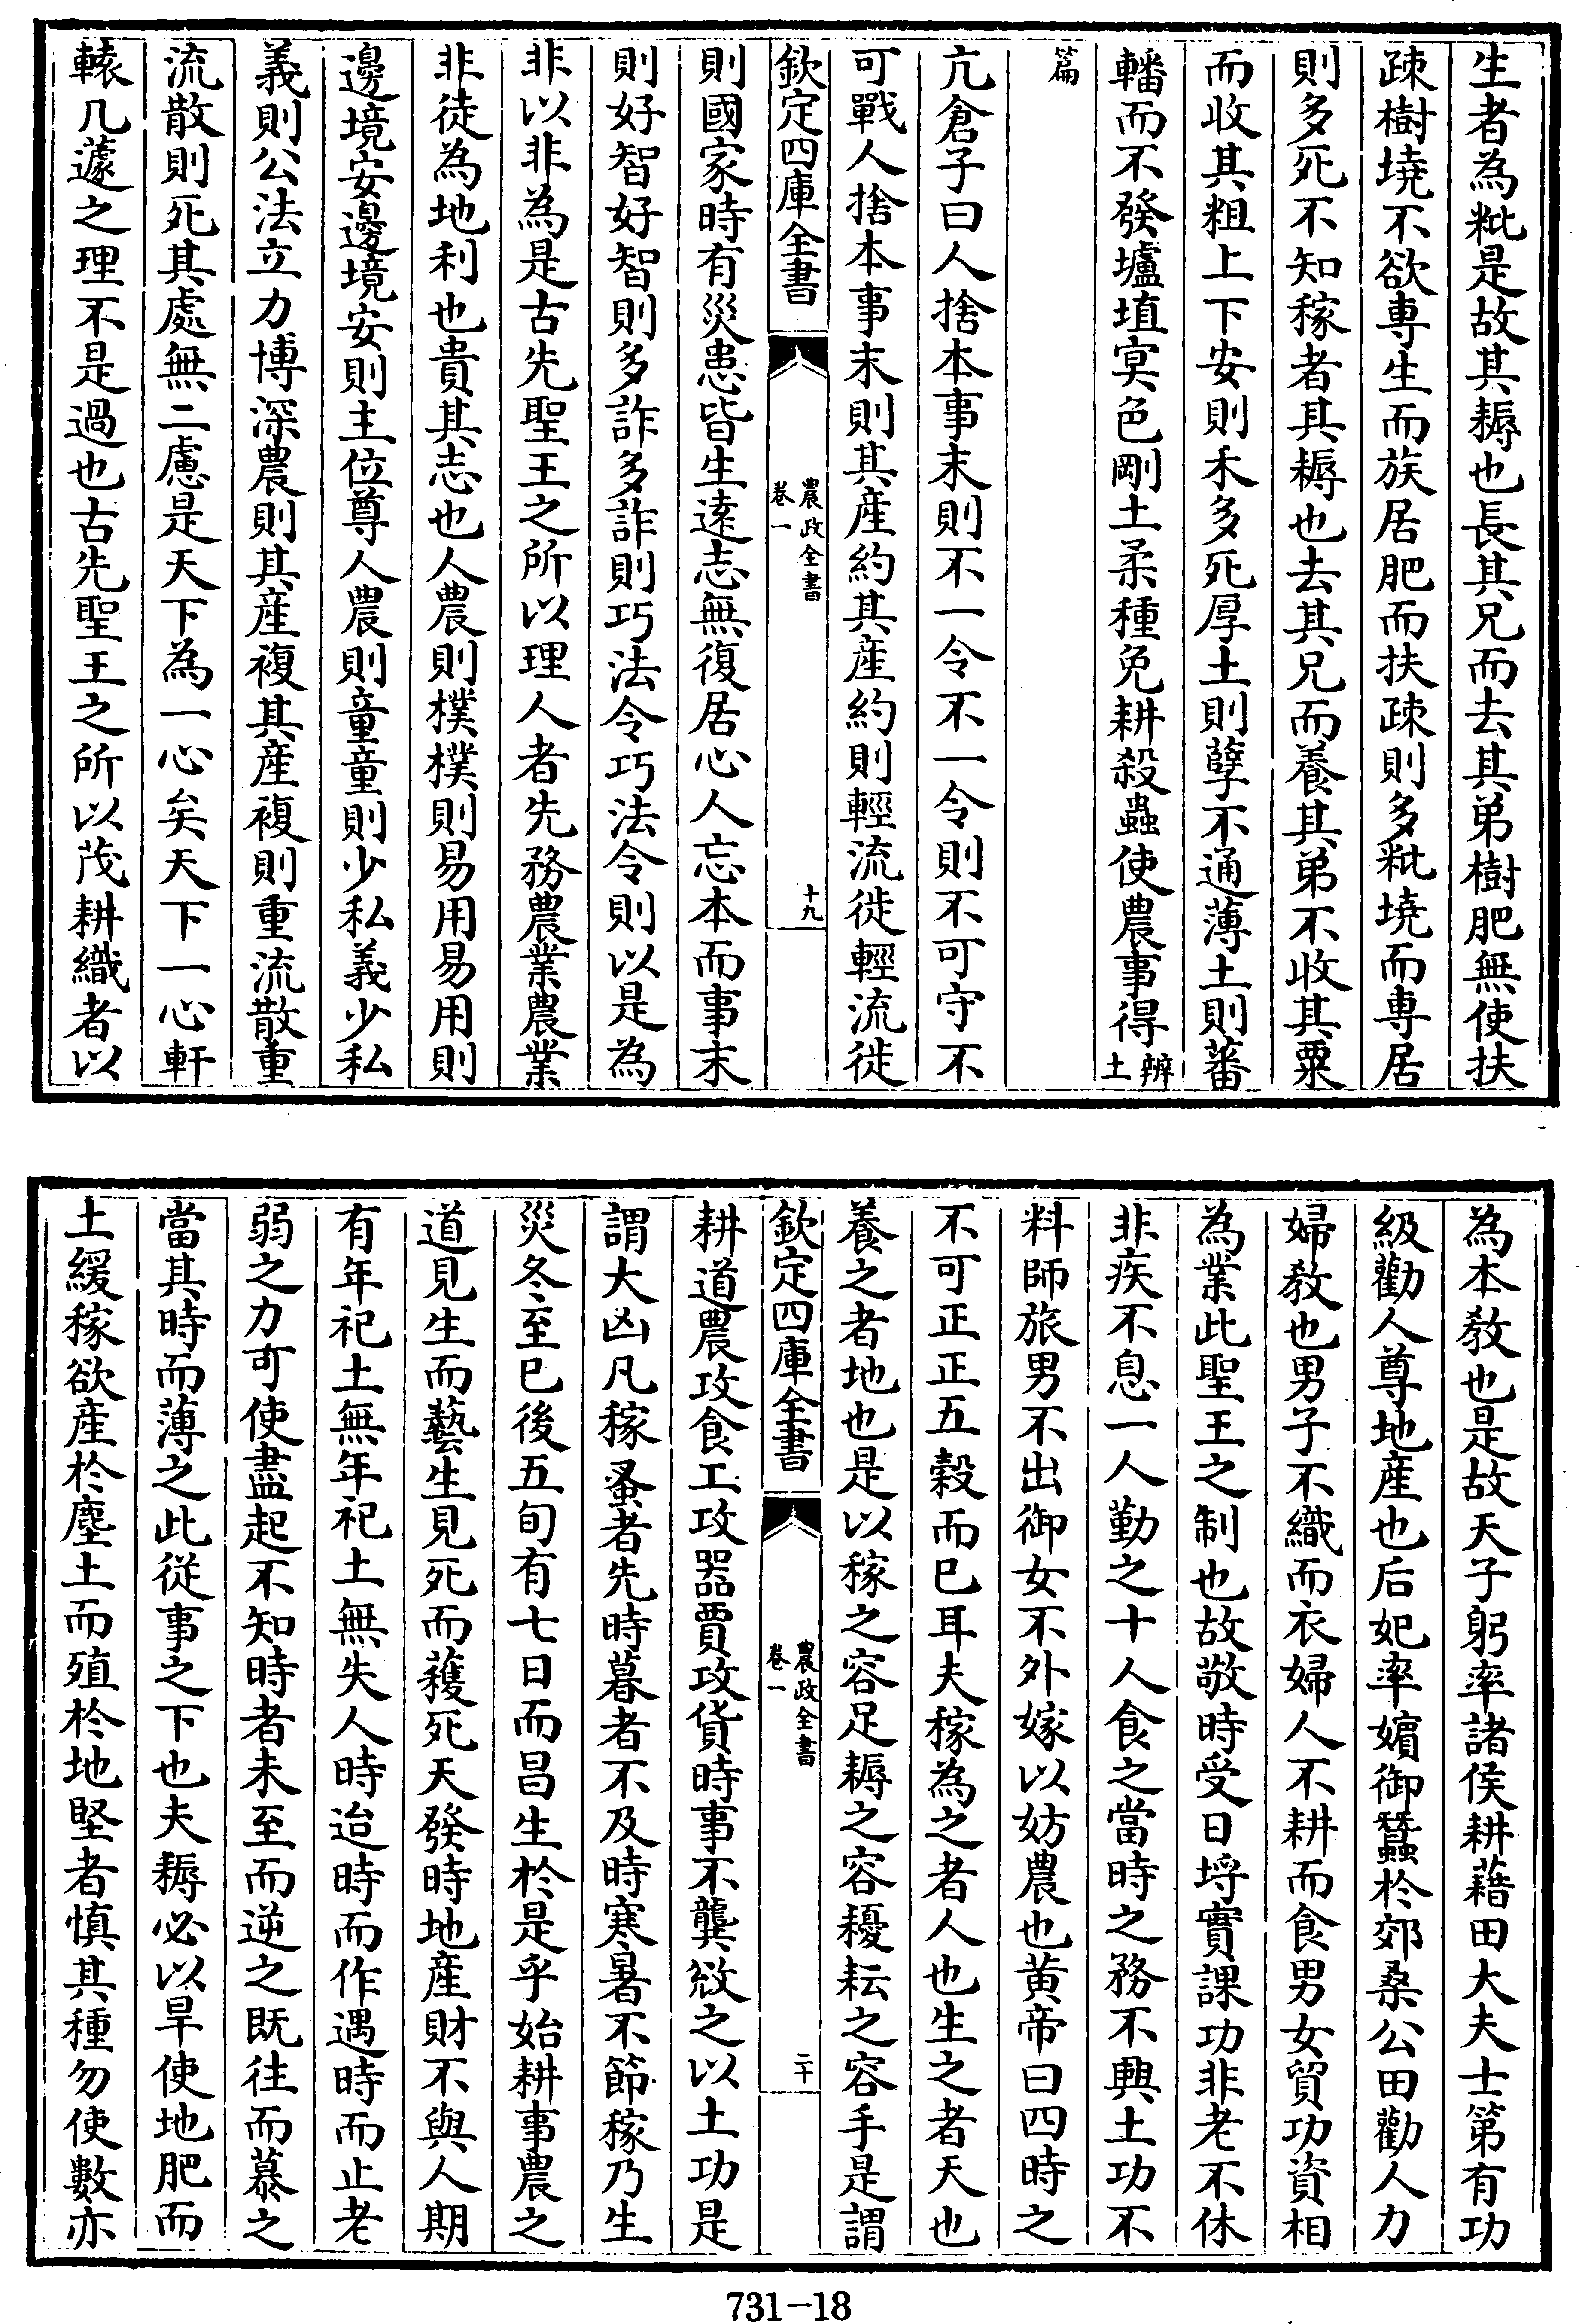 生者為粃是故其耨也長其兄而去其弟樹肥無使扶
疎樹墝不欲専生而族居肥而扶疎則多粃墝而専居
則多死不知稼者其耨也去其兄而養其弟不收其粟
而收其粗上下安則禾多死厚土則孽不通薄土則蕃
轓而不發壚埴㝠色剛土柔種免耕殺蟲使農事得辨土
篇
亢倉子曰人捨本事末則不一令不一令則不可守不
可戰人捨本事末則其産約其産約則輕流徙輕流徙
欽定四庫全書
農政全書
卷一
十九
則國家時有災患皆生逺志無復居心人忘本而事末
則好智好智則多詐多詐則巧法令巧法令則以是為
非以非為是古先聖王之所以理人者先務農業農業
非徒為地利也貴其志也人農則樸樸則易用易用則
邊境安邊境安則主位尊人農則童童則少私義少私
義則公法立力博深農則其産複其産複則重流散重
流散則死其處無二慮是天下為一心矣天下一心軒
轅几蘧之理不是過也古先聖王之所以茂耕織者以
為本敎也是故天子躬率諸侯耕藉田大夫士第有功
級勸人尊地産也后妃率嬪御蠶於郊桑公田勸人力
婦敎也男子不織而衣婦人不耕而食男女貿功資相
為業此聖王之制也故敬時受日埒實課功非老不休
非疾不息一人勤之十人食之當時之務不興土功不
料師旅男不出御女不外嫁以妨農也黄帝曰四時之
不可正正五穀而已耳夫稼為之者人也生之者天也
養之者地也是以稼之容足耨之容耰耘之容手是謂
欽定四庫全書
農政全書
卷一
二十
耕道農攻食工攻器賈攻貨時事不龔敓之以土功是
謂大凶凡稼蚤者先時暮者不及時寒暑不節稼乃生
災冬至已後五旬有七日而昌生於是乎始耕事農之
道見生而藝生見死而穫死天發時地産財不與人期
有年祀土無年祀土無失人時迨時而作遇時而止老
弱之力可使盡起不知時者未至而逆之既往而慕之
當其時而薄之此從事之下也夫耨必以旱使地肥而
土緩稼欲産於塵土而殖於地堅者慎其種勿使數亦
731-18